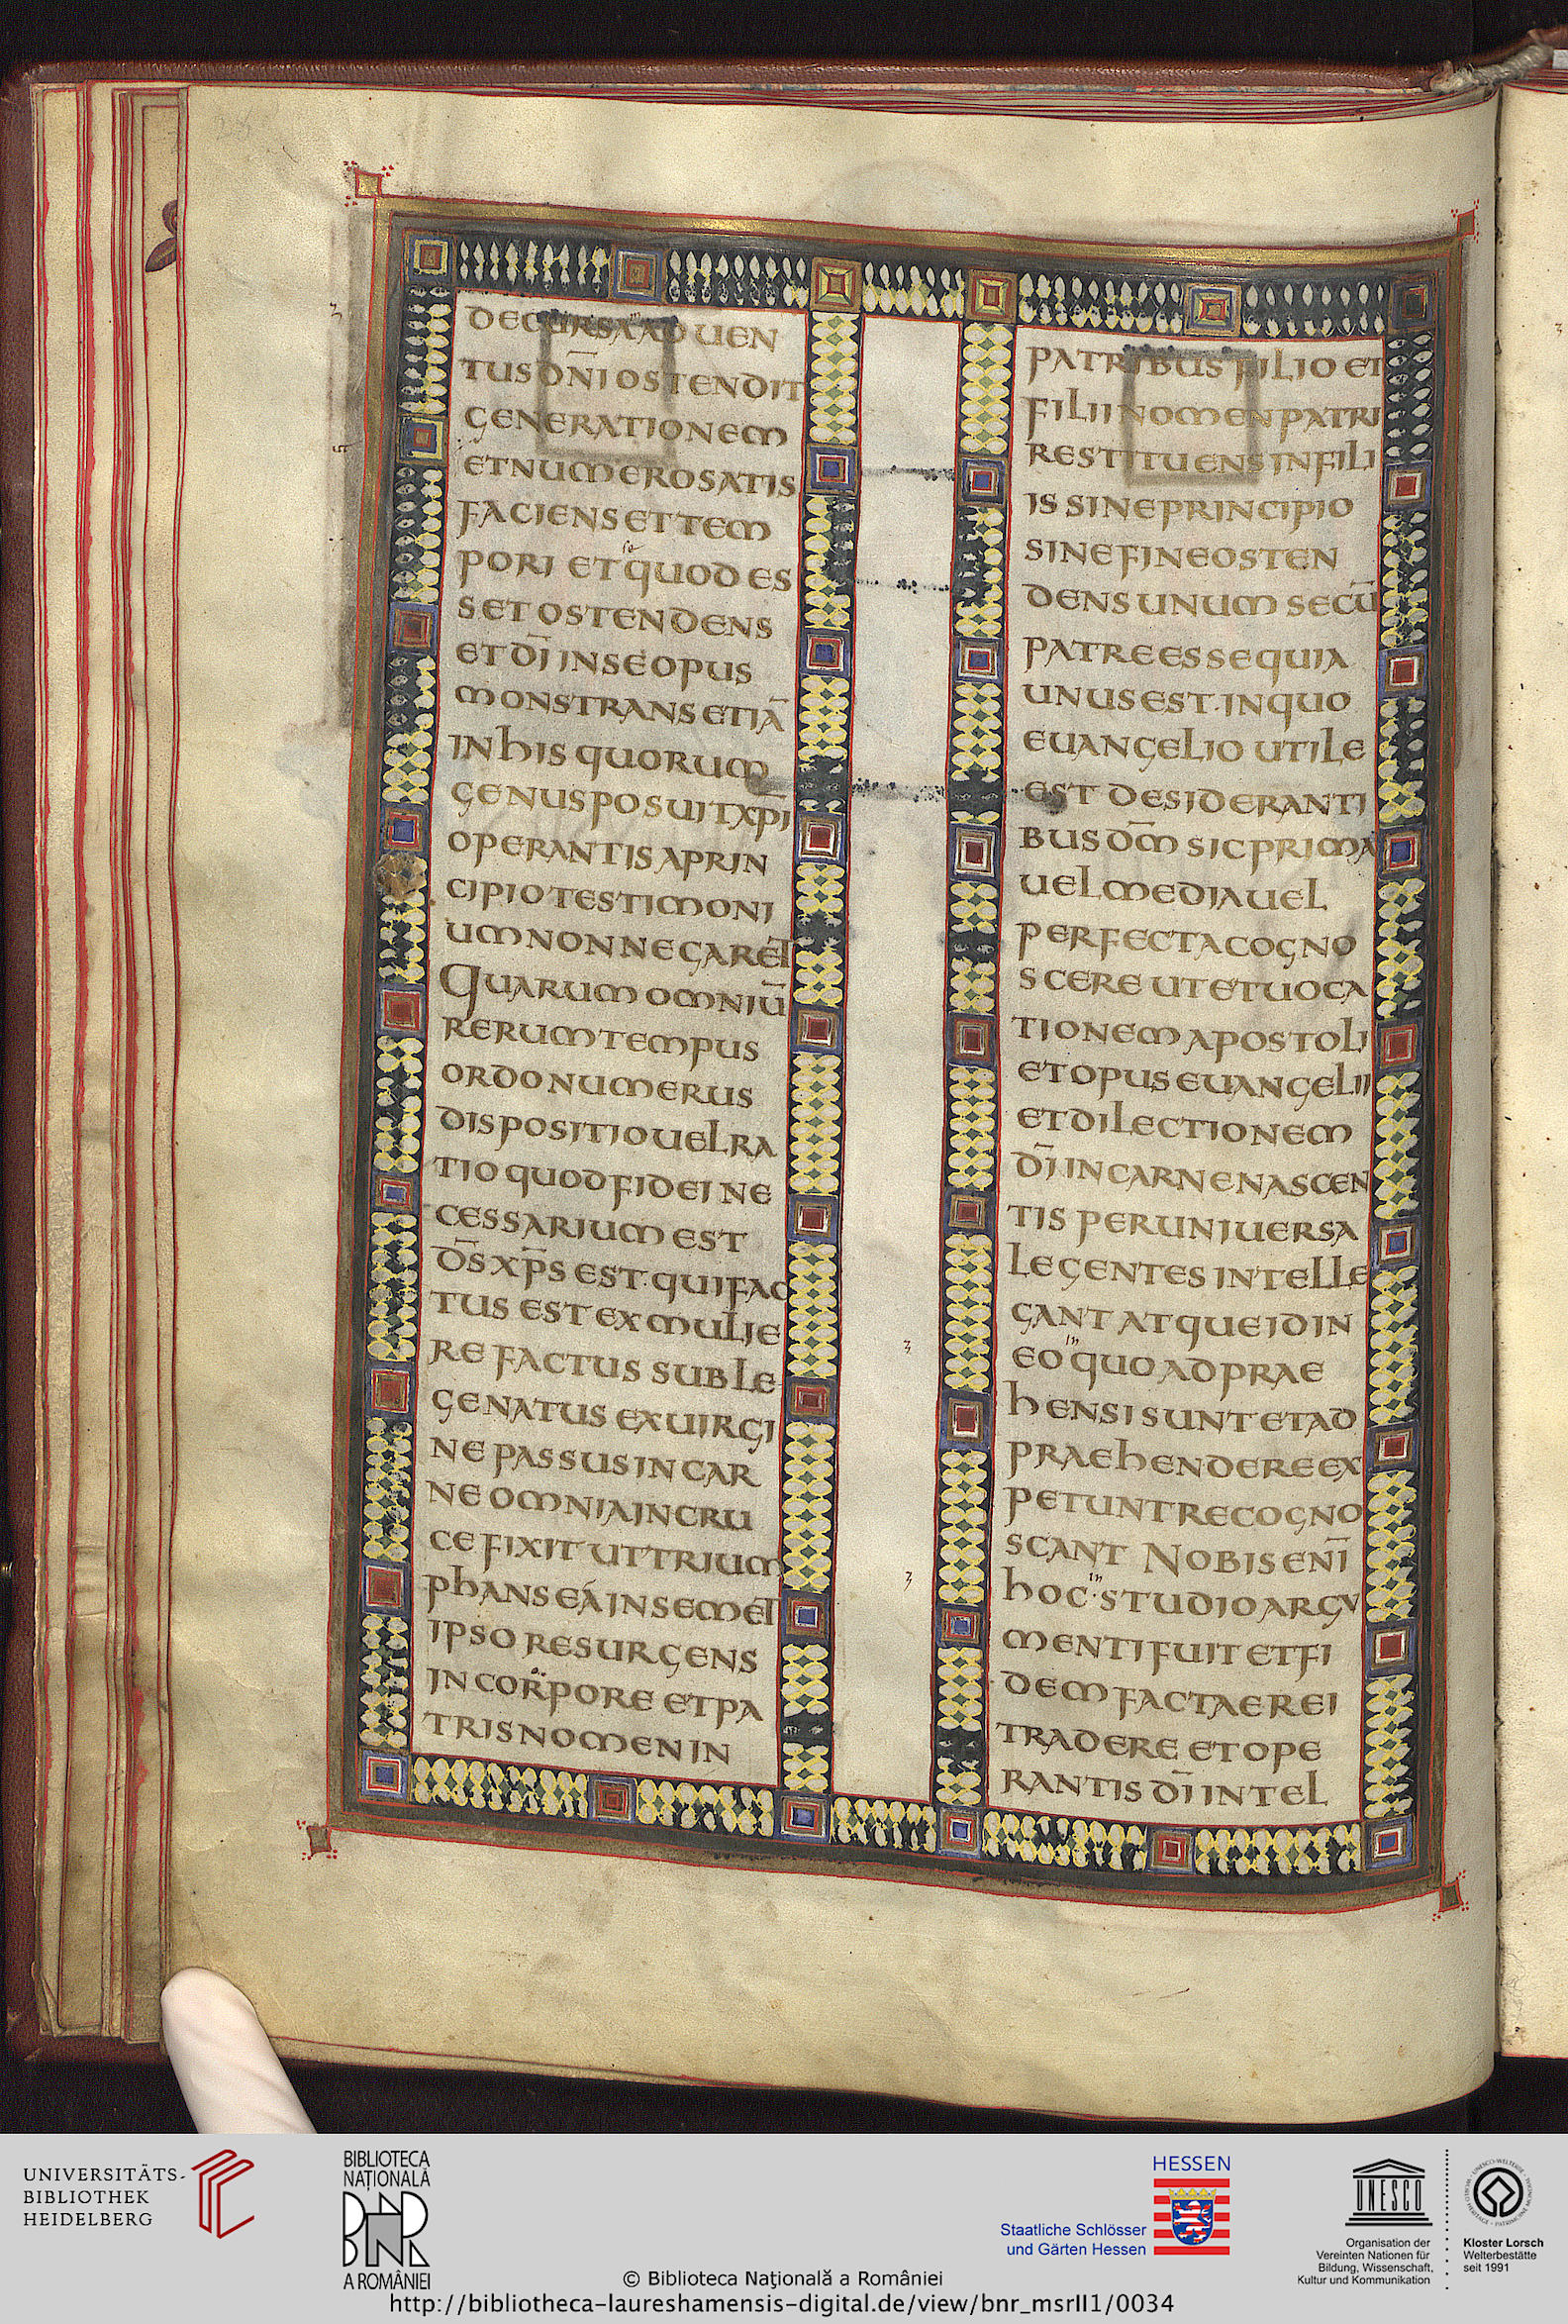 DECURSA AD UEN
TUS DN̄I OSTENDIT
GENERATIONEM
ET NUMERO SATIS
FACIENS ET TEM
PORI ET QUOD ES
SET OSTENDENS
ET DĪ IN SE OPUS
MONSTRANS ETIĀ
IN HIS QUORUM
GENUS POSUIT XP̄I
OPERANTIS A PRIN
CIPIO TESTIMONI
UM NON NEGARET
QUARUM OMNIŪ
RERUM TEMPUS
ORDO NUMERUS
DISPOSITIO UEL RA
TIO QUOD FIDEI NE
CESSARIUM EST
DS̄ XP̄S EST · QUI FAC
TUS EST EX MULIE
RE FACTUS SUB LE
GE NATUS EX UIRGI
NE PASSUS IN CAR
NE OMNIA IN CRU
CE FIXIT UT TRIUM
PHANS EA IN SEMET
IPSO RESURGENS
IN CORPORE ET PA
TRIS NOMEN IN
PATRIBUS FILIO ET
FILII NOMEN PATRI
RESTITUENS IN FILI
IS SINE PRINCIPIO
SINE FINE OSTEN
DENS UNUM SE CŪ
PATRE ESSE QUIA
UNUS EST · IN QUO
EUANGELIO UTILE
EST DESIDERANTI
BUS DM̄ SIC PRIMA
UEL MEDIA UEL
PERFECTA COGNO
SCERE UT ET UOCA
TIONEM APOSTOLI
ET OPUS EUANGELII
ET DILECTIONEM
DĪ IN CARNE NASCEN
TIS PER UNIUERSA
LEGENTES INTELLE
GANT ATQUE ID IN
EO in QUO ADPRAE
HENSI SUNT ET AD
PRAEHENDERE EX
PETUNT RECOGNO
SCANT NOBIS ENĪ
HOC · in STUDIO ARGU
MENTI FUIT ET FI
DEM FACTAE REI
TRADERE ET OPE
RANTIS DĪ INTEL
UNIVERSITÄTS-
BIBLIOTHEK
HEIDELBERG
BIBLIOTECA
NAȚIONALĂ
BNR
A ROMÂNIEI
HESSEN
Staatliche Schlösser
und Gärten Hessen
UNESCO
Organisation der
Vereinten Nationen für
Bildung, Wissenschaft,
Kultur und Kommunikation
Kloster Lorsch
Welterbestätte
seit 1991
© Biblioteca Naţională a României
http://bibliotheca-laureshamensis-digital.de/view/bnr_msrII1/0034